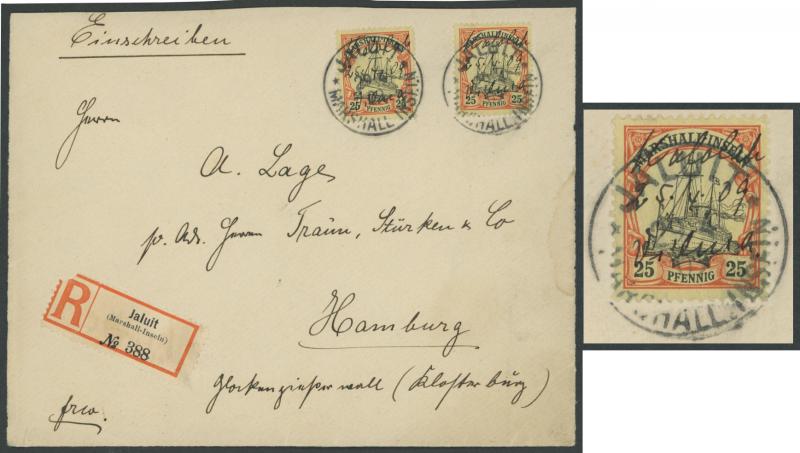 Einschreiben
MARSHALL-INSELN
25 PFENNIG 25
JALUIT
MARSHALL-INSELN
MARSHALL-INSELN
25 PFENNIG 25
JALUIT
MARSHALL-INSELN
Herrn
A. Lage
p. Ads. Herren Traun, Stürken & Co
Hamburg
Glockengießerwall (Klosterburg)
frco.
R
Jaluit
(Marshall-Inseln)
№ 388
MARSHALL-INSELN
JALUIT
25.4.09
25 PFENNIG 25
MARSHALL-INSELN